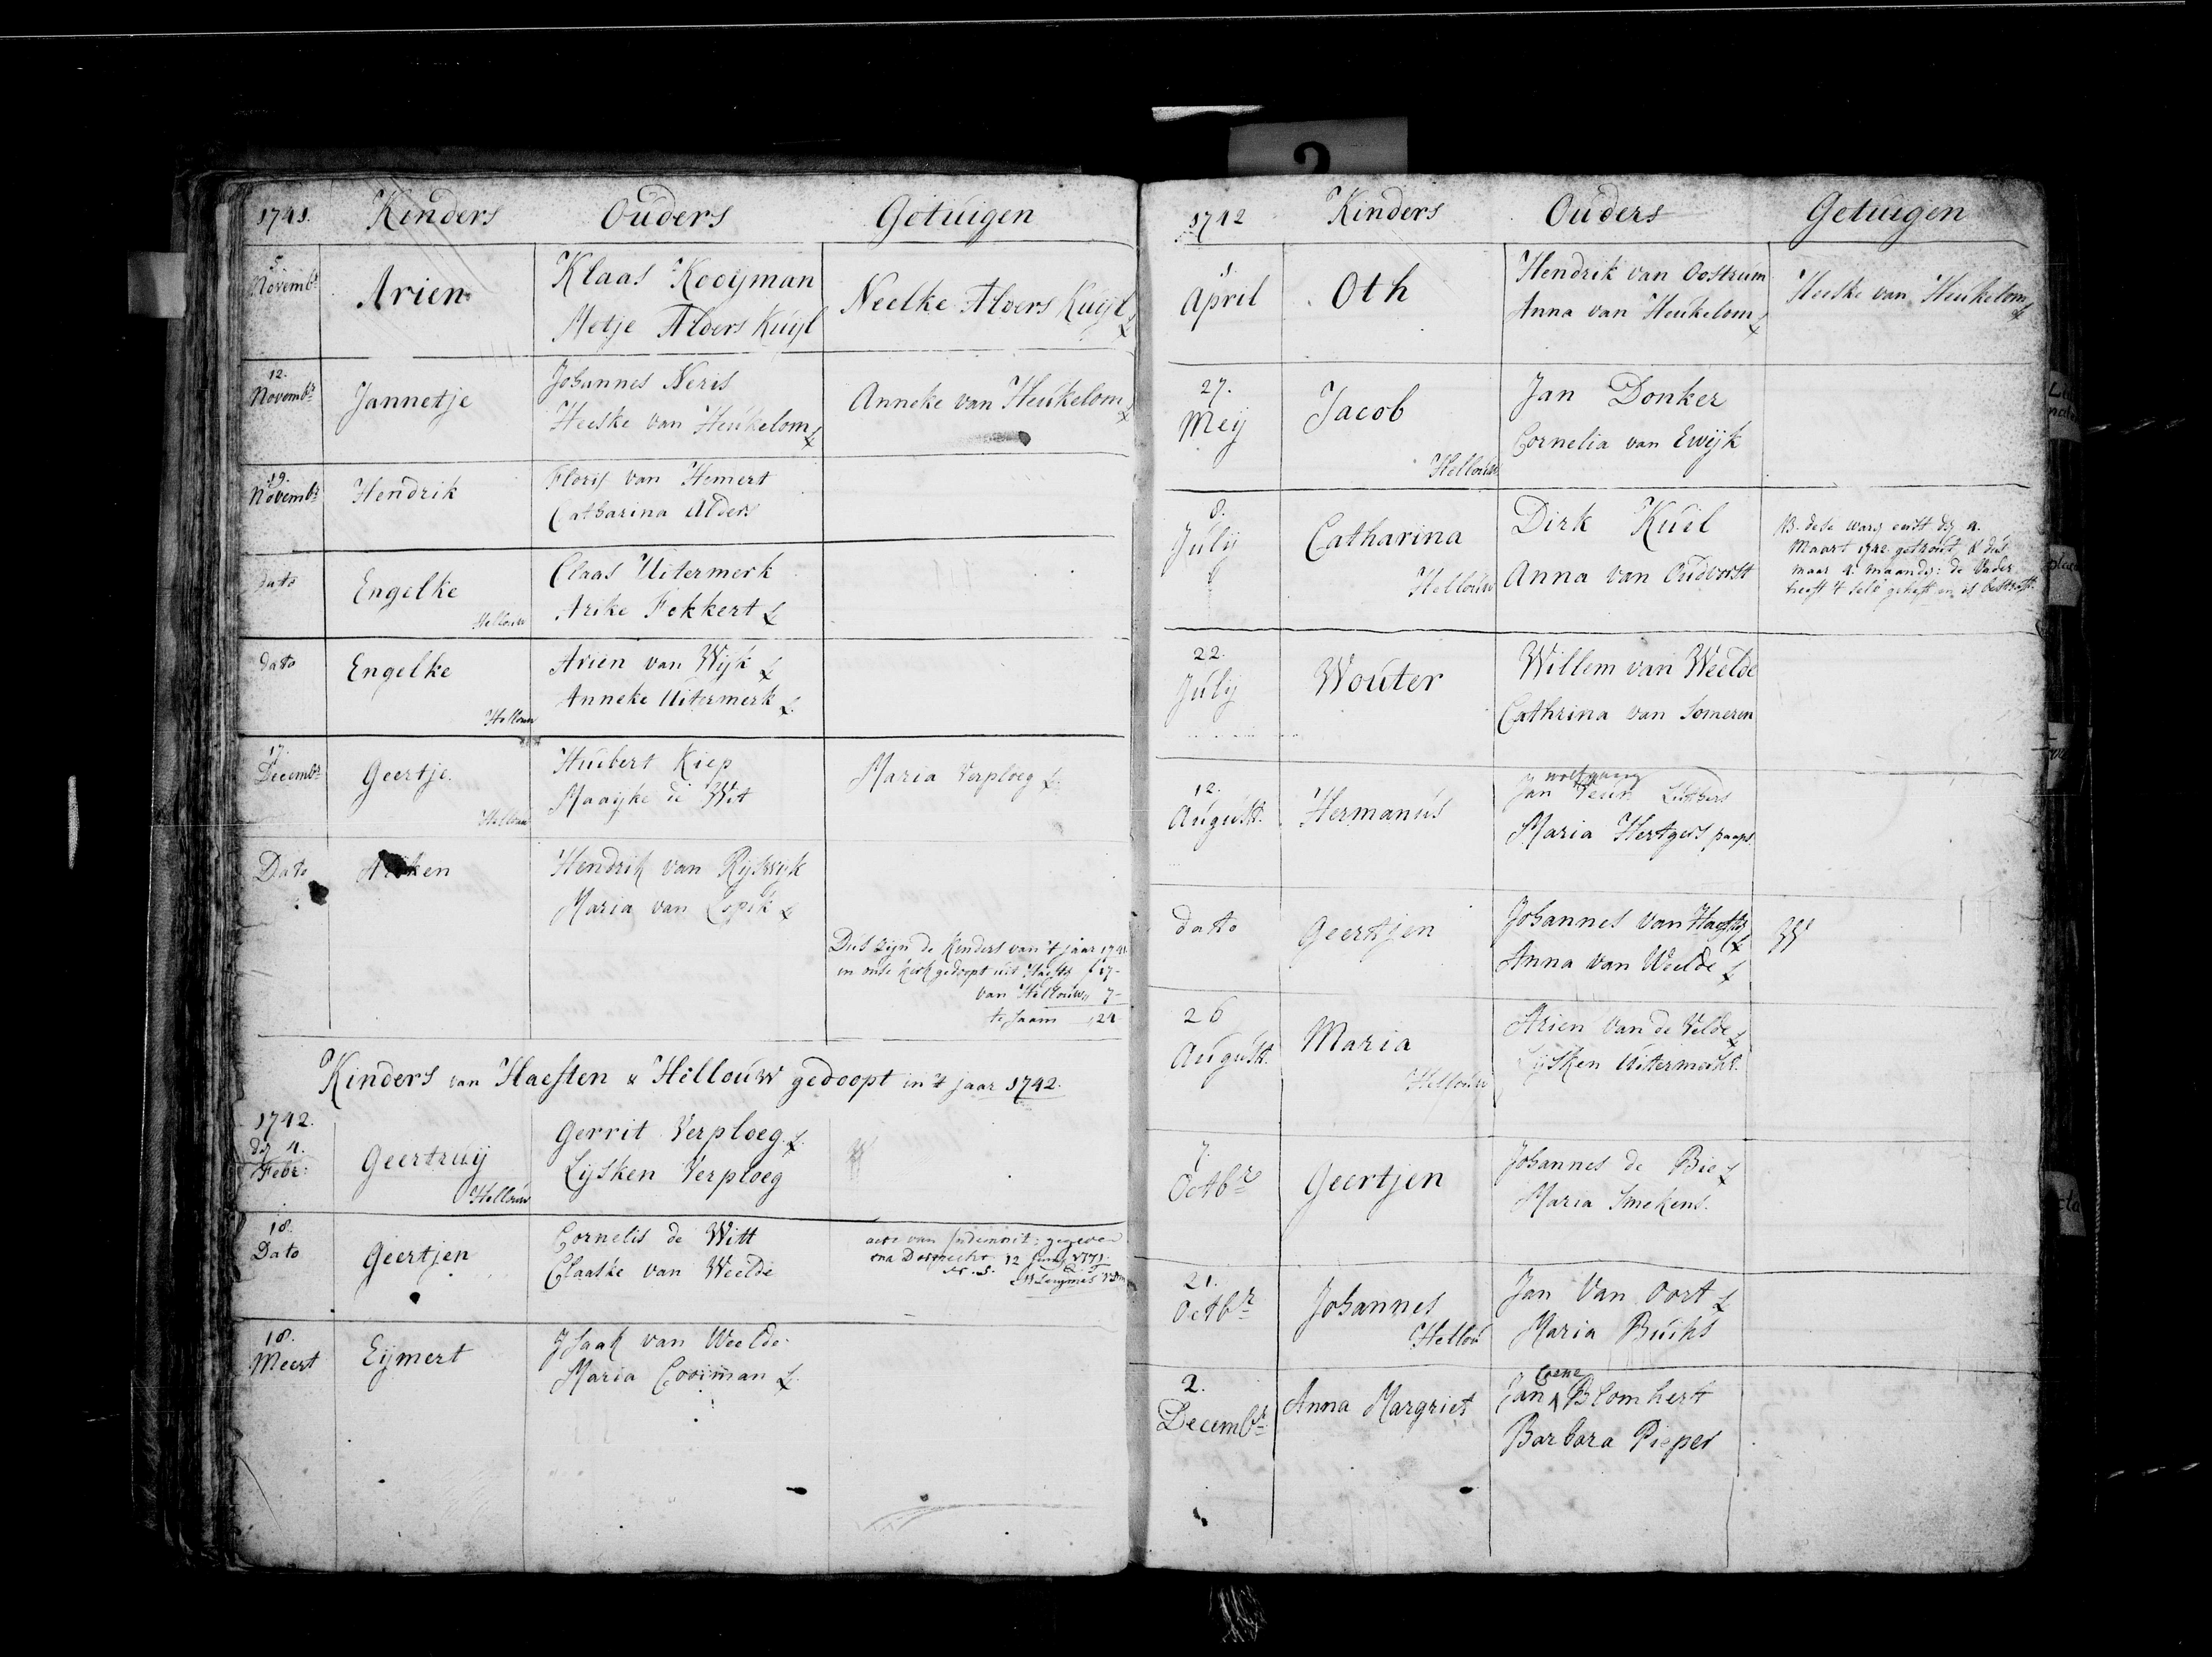 2
1741. Kinders Ouders Getuigen
5. Novembr Arien Klaas Kooijman Neelke Alders Kuijl
Metje Alders Kuijl
12. Novembr Jannetje Johannes Neris Anneke van Heukelom
Heeske van Heukelom
19. Novembr Hendrik Floris van Hemert
Catharina Alders
dato Engelke Claas Uitermerk
Hellouw Arike Fekkert
dato Engelke Arien van Wijk
Hellouw Anneke Uitermerk
17. Decembr Geertje Huibert Kiep Maria Verploeg
Hellouw Maaijke de Wit
Dato Hendrik van Rijswijk
Maria van Lopik
Dus zijn de Kinders van 't jaar 1741
in onse kerk gedoopt uit Haeften 17-
van Hellouw 7-
te saam 24
Kinders van Haeften & Hellouw gedoopt in 't jaar 1742.
1742.
d. 4. Febr: Geertruij Gerrit Verploeg
Hellouw Lijsken Verploeg
18. Dato Geertjen Cornelis de Witt acte van indemnit: gegeven
Claaske van Weelde 12 1771
18. Meert Eijmert Isaak van Weelde
Maria Cooiman
1742 Kinders Ouders Getuigen
April Oth Hendrik van Oostrum Heeske van Heukelom
Anna van Heukelom
27. Meij Jacob Jan Donker
Hellouw Cornelia van Ewijk
8. Julij Catharina Dirk Kuil NB. dese ware eerst d. 4.
Hellouw Anna van Oudvorst Maart 1742 getrout, & dus
maar 4. maanden: de Vader
heeft 't selv en is bestraft.
22. Julij Wouter Willem van Weelde
Cathrina van Someren
12. August. Hermanus Jan Lubbers
Maria Hertgers paaps
dato Geertjen Johannes van Haeften
Anna van Weelde
26 August. Maria Arien van de Velde
Hellouw Lijsken Uitermerk
7. Octbr Geertjen Johannes de Bie
Maria Smekens.
21. Octbr Johannes Jan van Oort
Hellou Maria Buiks
2. Decembr Anna Margriet Jan Coene Blomhert
Barbara Pieper